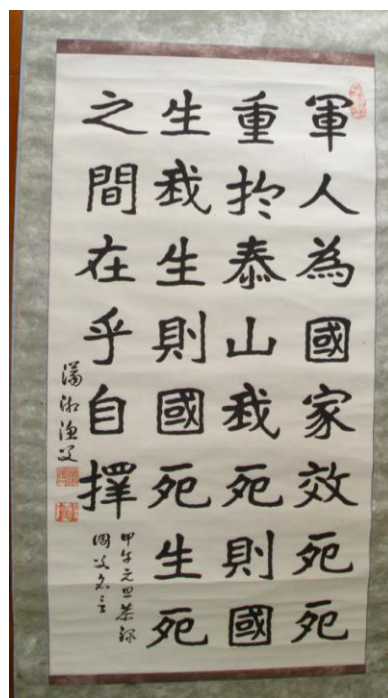 軍人為國家效死死
重於泰山我死則國
生我生則國死生死
之間在乎自擇
甲午元旦恭錄
國父名言
瀟湘漁父